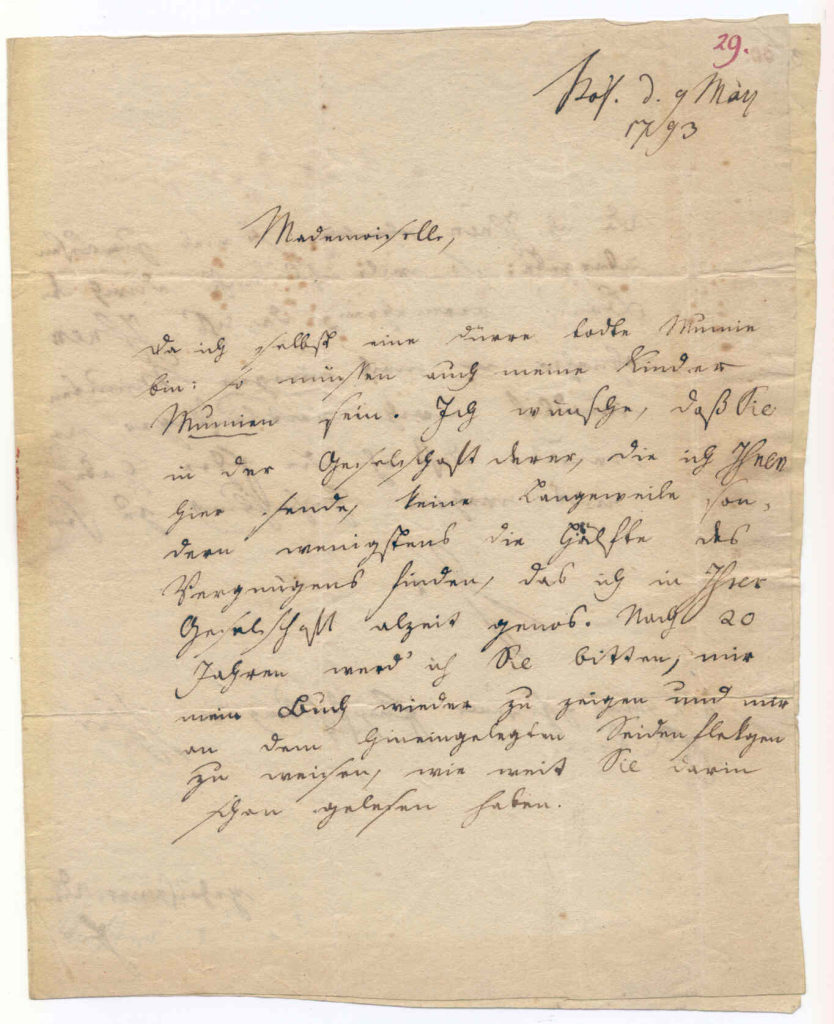 29.
Hof. d. 9 May
1793
Mademoiselle,
Da ich selbst eine dürre todte Mumie
bin: so müssen auch meine Kinder
Mumien sein. Ich wünsche, daß Sie
in der Geselschaft derer, die ich Ihnen
hier sende, keine Langeweile son-
dern wenigstens die Hälfte des
Vergnügens finden, das ich in Ihrer
Geselschaft alzeit genos. Nach 20
Jahren werd' ich Sie bitten, mir
mein Buch wieder zu zeigen und mir
an dem hineingelegten Seidenflekgen
zu weisen, wie weit Sie darin
schon gelesen haben.